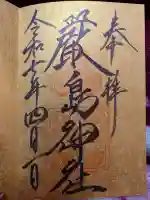 奉拝
厳島神社
令和七年四月一日